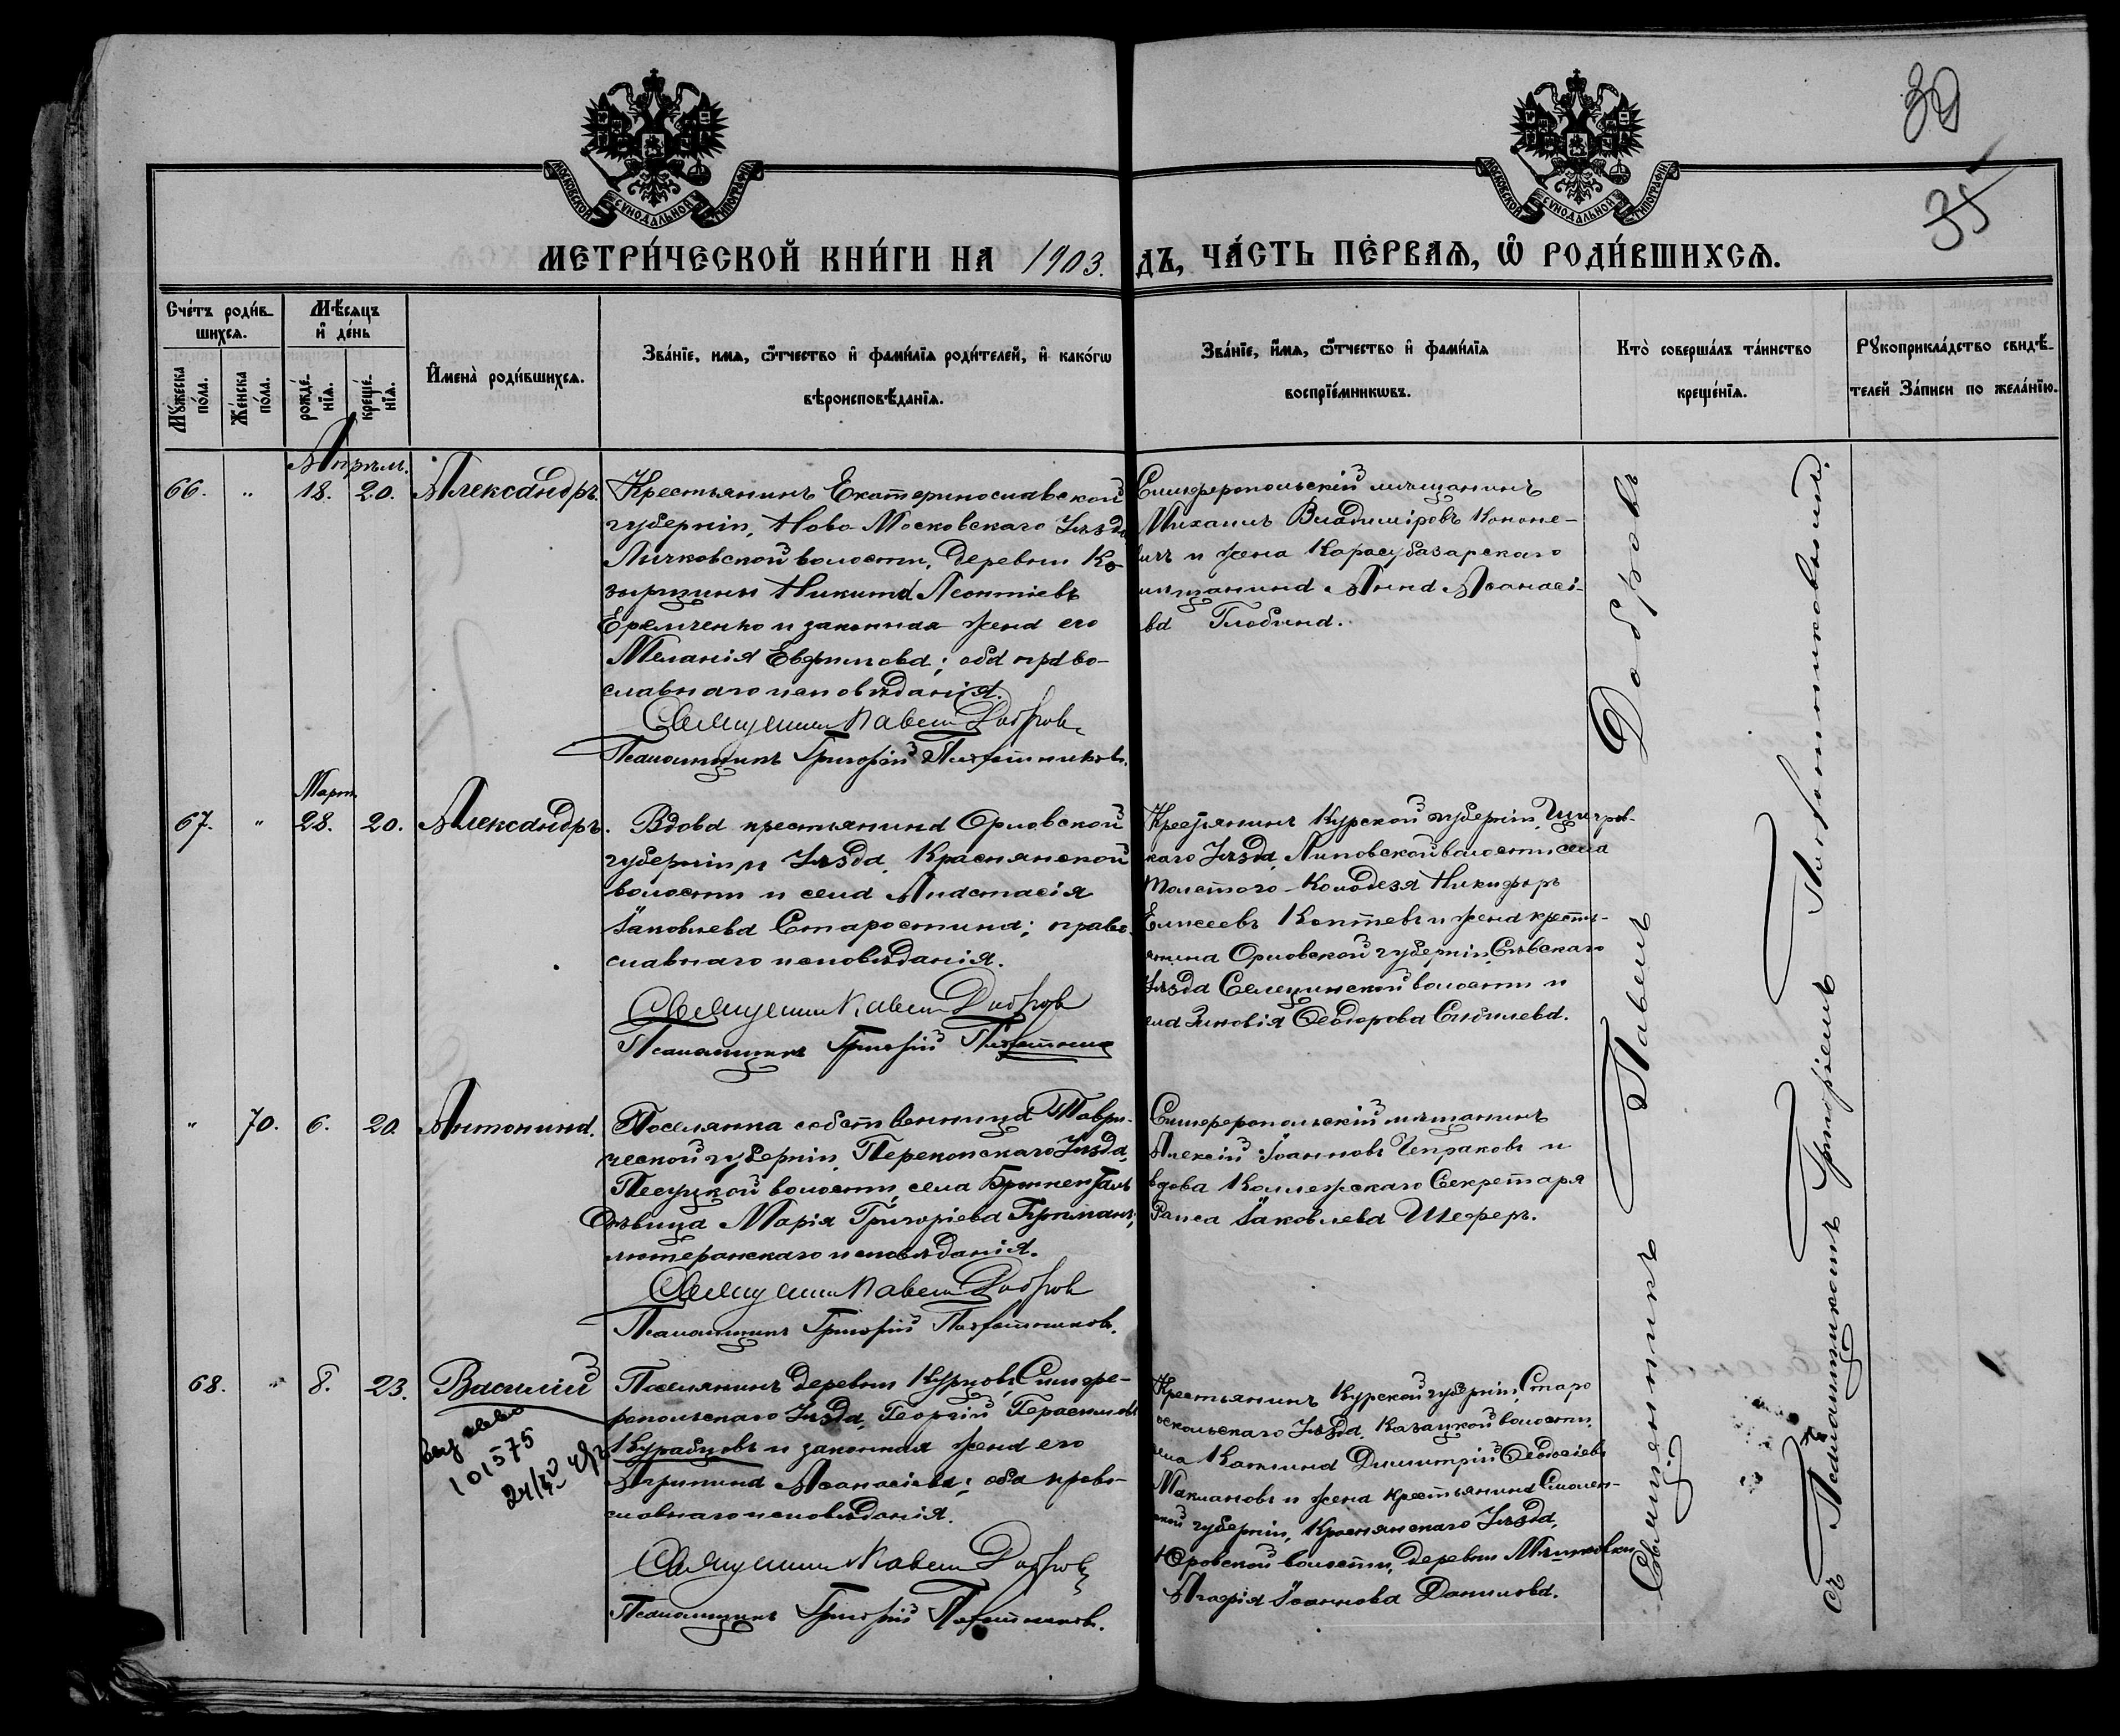 МОСКОВСКОЙ СѴНОДАЛЬНОЙ ТИПОГРАФІИ
МОСКОВСКОЙ СѴНОДАЛЬНОЙ ТИПОГРАФІИ
39
35
МЕТРИ́ЧЕСКОЙ КНИ́ГИ НА 1903.
ДЪ, ЧА́СТЬ ПЕ́РВАЯ, Ѿ РОДИ́ВШИХСЯ.
Сче́тъ роди́в-
шихся.
Мꙋ́жеска по́ла.
Же́нска по́ла.
Мѣ́сяцъ
и҆ де́нь
рожде́-
нїя.
креще́-
нїя.
И҆мена̀ роди́вшихся.
Зва́нїе, имя, ѻ҆́тчество и҆ фами́лїя роди́телей, и҆ како́гѡ
вѣроисповѣ́данїя.
Зва́нїе, и҆́мя, ѻ҆́тчество и҆ фами́лїя
воспрїе́мникѡвъ.
Кто̀ соверша́лъ та́инство
креще́нїя.
Рꙋкоприкла́дство свидѣ́-
телей За́писи по жела́нїю.
Апрѣль.
66. " 18. 20. Александръ.
Крестьянинъ Екатеринославской
губерніи, Ново Московскаго Уѣзда
Личковской волости, деревни Ко-
зырщины Никита Леонтіевъ
Еремченко и законная жена его
Меланія Евфимова; оба право-
славнаго исповѣданія.
Священник Павел Добров
Псаломщикъ Григорій Плотниковъ.
Симферопольскій мѣщанинъ
Михаилъ Владиміровъ Кононе-
вичъ и жена Карасубазарскаго
мѣщанина Анна Аѳанасі-
ва Глобина.
Март.
67. " 28. 20. Александръ.
Вдова крестьянина Орловской
губерніи и Уѣзда, Краснянской
волости и села Анастасія
Іаковлева Старостина; право-
славнаго исповѣданія.
Священник Павел Добров
Псаломщикъ Григорій
Крестьянинъ Курской губерніи, Щигров-
скаго Уѣзда, Липовской волости, села
Толстого-Колодезя Никифоръ
Елисеевъ Коптевъ и жена кресть-
янина Орловской губерніи, Сѣвскаго
Уѣзда Селечинской волости и
села Зиновія Ѳеодорова
" 70. 6. 20. Антонина.
Поселянка собственница Таври-
ческой губерніи, Перекопскаго Уѣзда,
волости, села
Дѣвица Марія Григоріева
лютеранскаго исповѣданія.
Священник Павел Добров
Псаломщикъ Григорій Плотниковъ.
Симферопольскій мѣщанинъ
Алексій Іоанновъ Чепраковъ и
вдова Коллежскаго Секретаря
Раиса Іаковлева Шеферъ.
68. " 8. 23. Василій
101575
Поселянинъ деревни Курцовъ, Симфе-
ропольскаго Уѣзда, Георгій Герасимовъ
Курабцовъ и законная жена его
Агрипина Аѳанасіева; оба право-
славнаго исповѣданія.
Священник Павел Добров
Псаломщикъ Григорій Плотниковъ.
Крестьянинъ Курской губерніи, Старо
оскольскаго Уѣзда, Казацкой волости,
села Котлина Димитрій Ѳеодосіевъ
и жена крестьянина Смолен-
ской губерніи, Краснянскаго Уѣзда,
волости, деревни
Іоаннова Данилова.
Священникъ Павелъ Добровъ
съ Псаломщикомъ Григоріемъ Плотниковымъ.